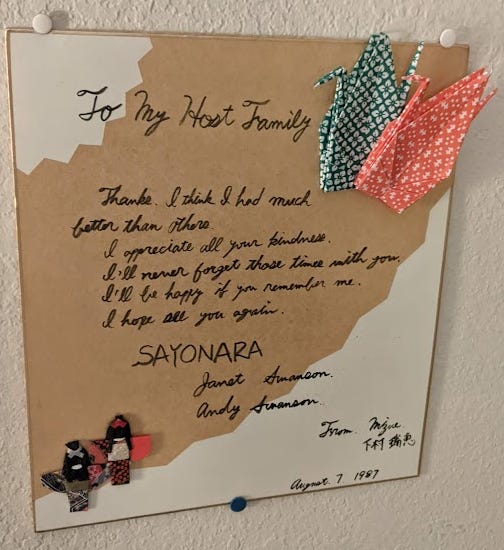 To My Host Family
Thanks. I think I had much
better than others.
I appreciate all your kindness.
I'll never forget those times with you.
I'll be happy if you remember me.
I hope see you again.
SAYONARA
Janet Swanson.
Andy Swanson.
From. Mizue
下村 瑞恵
August. 7 1987